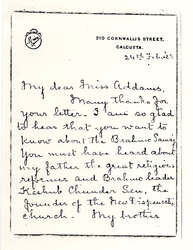 210 CORNWALLIS STREET,
CALCUTTA.
My dear Miss Addams,
Many thanks for
your letter. I am so glad
to hear that you want to
know about the Brahmo Samaj
You must have heard about
my father the great religious
reformer and Brahmo leader
Keshub Chunder Sen, the
founder of the New Dispensation
church. My brother